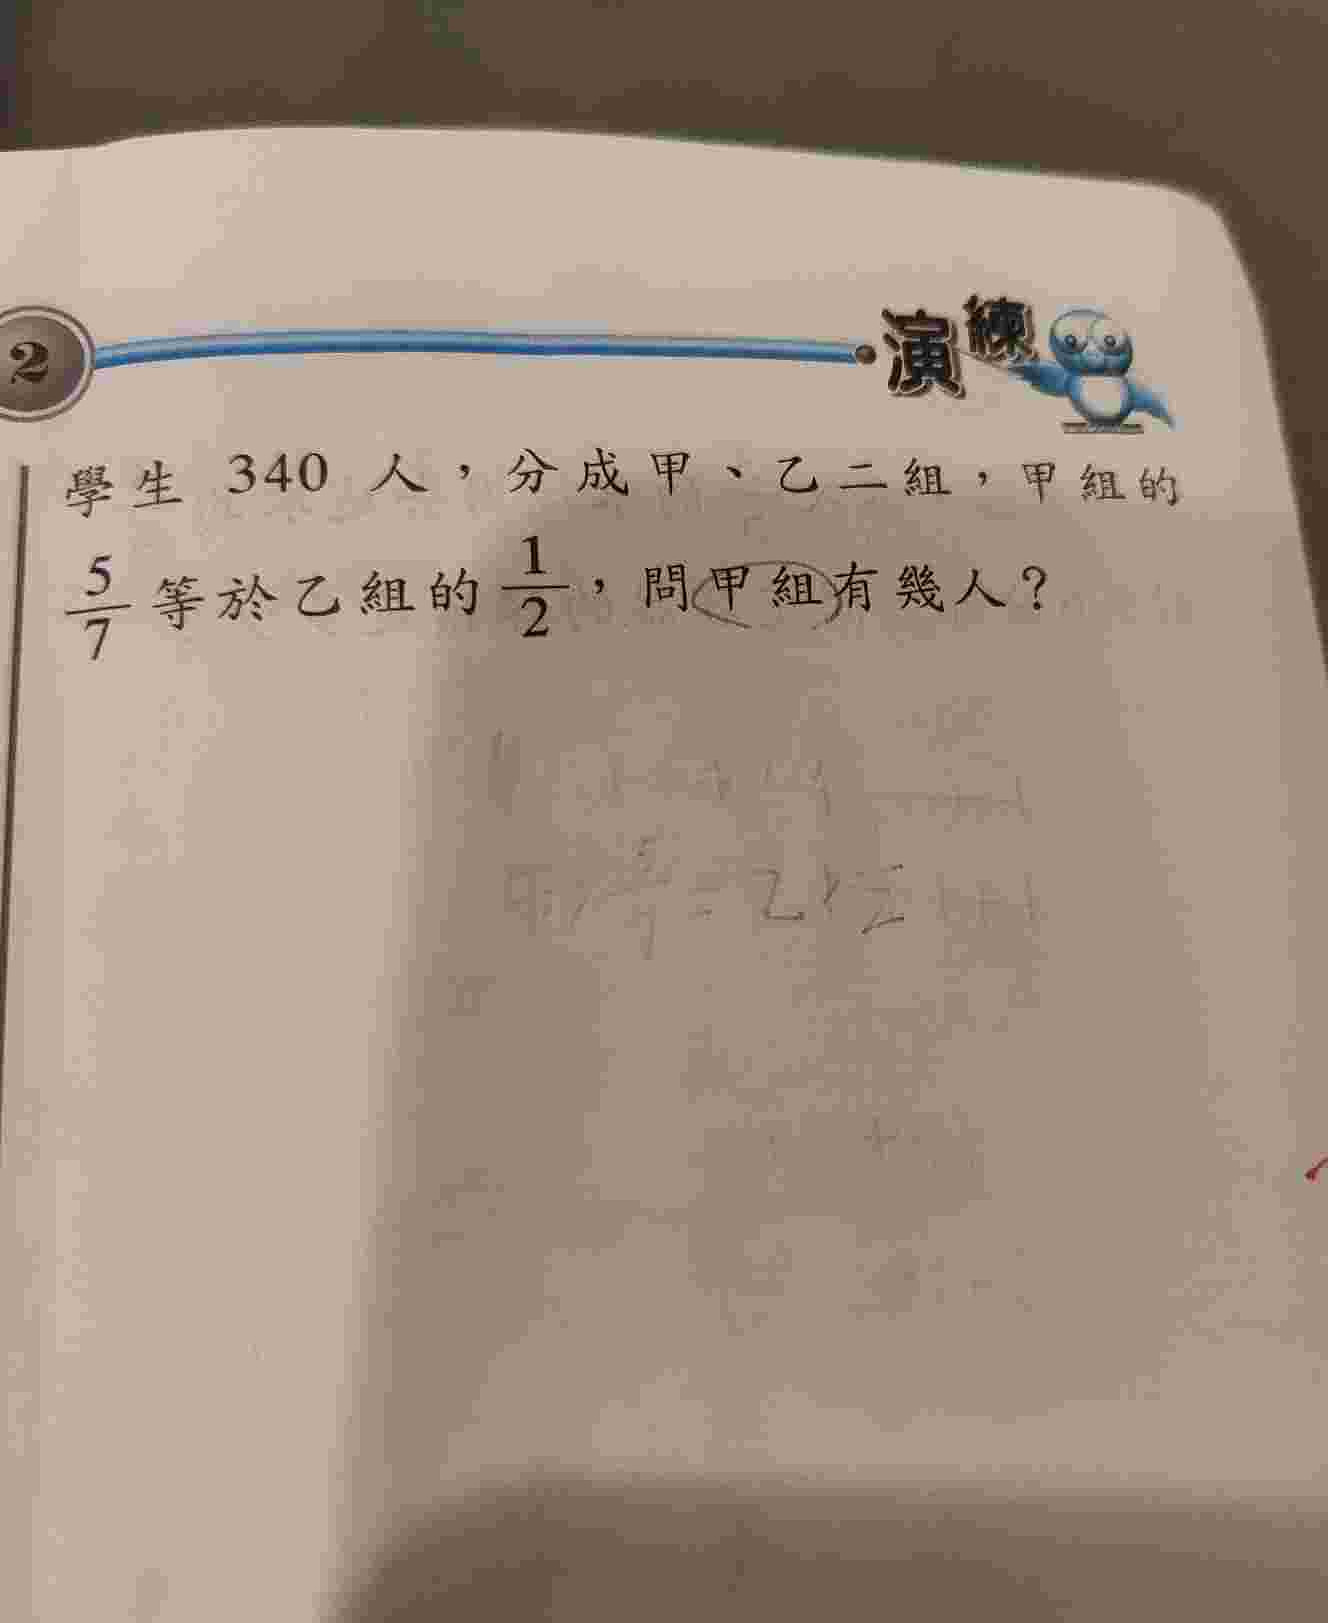 2
演練
學生 340 人,分成甲、乙二組,甲組的
5/7 等於乙組的 1/2,問甲組有幾人?